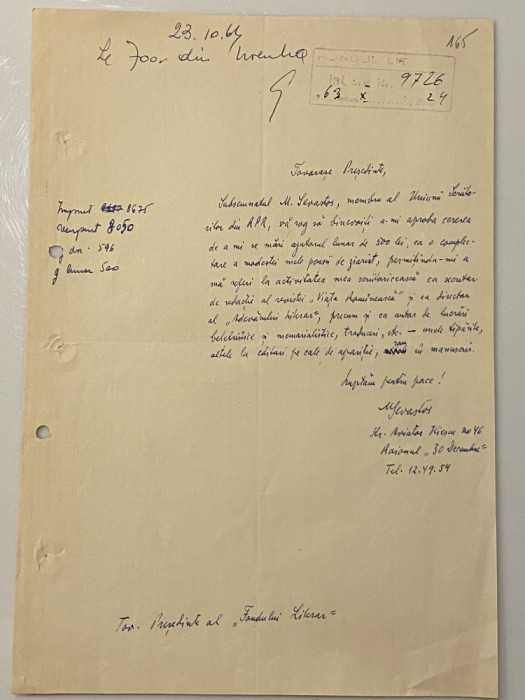 23.10.64
165
FONDUL LIT
9726
63 X 24
Tovarășe Președinte,
Subsemnatul M. Sevastos, membru al Uniunii Scriito-
rilor din RPR, vă rog să binevoiți a-mi aproba cererea
de a mi se mări ajutorul lunar de 500 lei, ca o complec-
tare a modestei mele pensii de ziarist, permițîndu-mi a
mă referi la activitatea mea scriitoricească ca secretar
de redacție al revistei „Viața Romînească" și ca director
al „Adevărului literar", precum și ca autor de lucrări
beletristice și memorialistice, traduceri, etc. — unele tipărite,
altele la edituri pe cale de apariție, sau în manuscris.
Luptăm pentru pace!
MSevastos
Str. Aviator Iliescu no 46
Raionul „30 Decembrie"
Tel. 12.49.54
Împrumut 8625
8090
dn. 596
500
Tov. Președinte al „Fondului Literar"